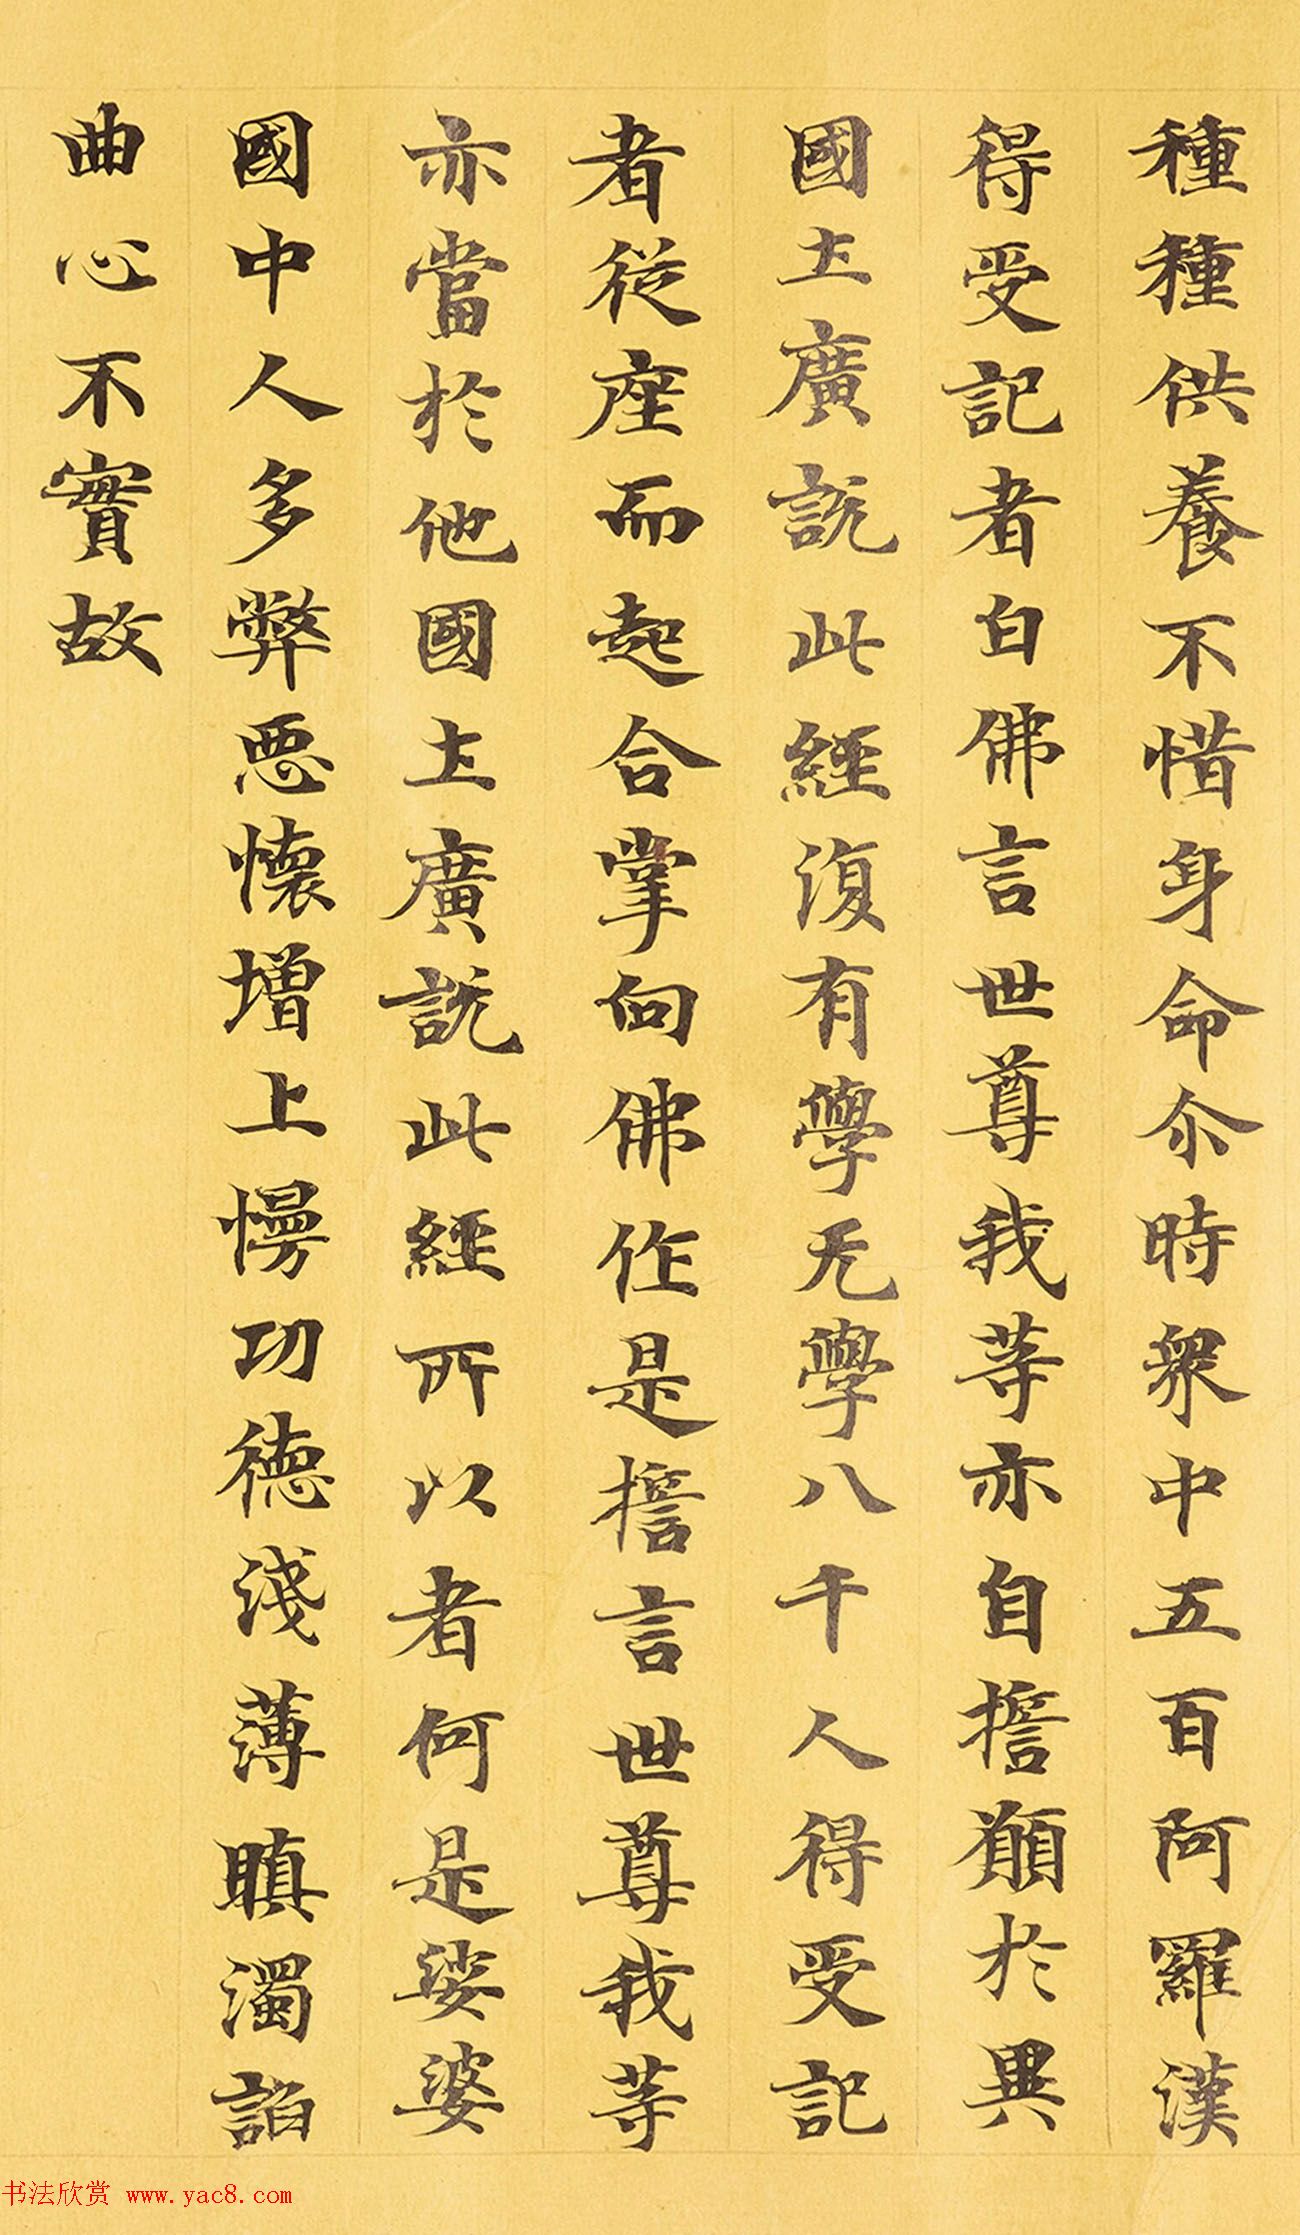 種種供養不惜身命尒時衆中五百阿羅漢
得受記者白佛言世尊我等亦自擔願於異
國土廣說此經復有學无學八千人得受記
者從座而起合掌向佛作是擔言世尊我等
亦當於他國土廣說此經所以者何是娑婆
國中人多弊惡懷增上慢功德淺薄瞋濁諂
曲心不實故
书法欣赏 www.yac8.com